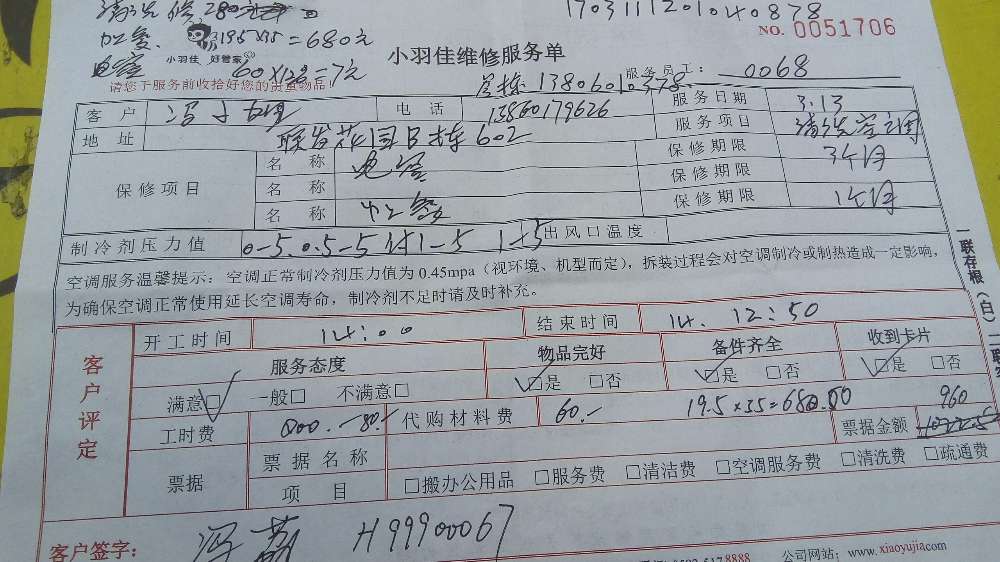 清洗 修 280元
1703111201040878
加氟 19.5×35=680元
NO. 0051706
小羽佳 好管家
小羽佳维修服务单
电容 60×12=7元
请您于服务前收拾好您的贵重物品!
13806010378
服务员工: 0068
客户 冯
电话 13860179626
服务日期 3.13
地址 联发花园B栋602
服务项目 清洗空调
保修项目
名称 电容
保修期限 3个月
名称
保修期限
名称 加氟
保修期限 1个月
制冷剂压力值 0-5 0.5-5 付1-5 1-5
出风口温度
空调服务温馨提示:空调正常制冷剂压力值为0.45mpa(视环境、机型而定),拆装过程会对空调制冷或制热造成一定影响,
为确保空调正常使用延长空调寿命,制冷剂不足时请及时补充。
一联存根(白)二联
客户评定
开工时间 14:00
结束时间 14. 12:50
服务态度
物品完好
备件齐全
收到卡片
满意□ 一般□ 不满意□
□是 □否
□是 □否
□是 □否
工时费
代购材料费 60.-
19.5×35=680.00
票据金额 960
票据
票据名称
项目
□搬办公用品 □服务费 □清洁费 □空调服务费 □清洗费 □疏通费
客户签字: 冯 H99900067
8888
公司网站: www.xiaoyujia.com